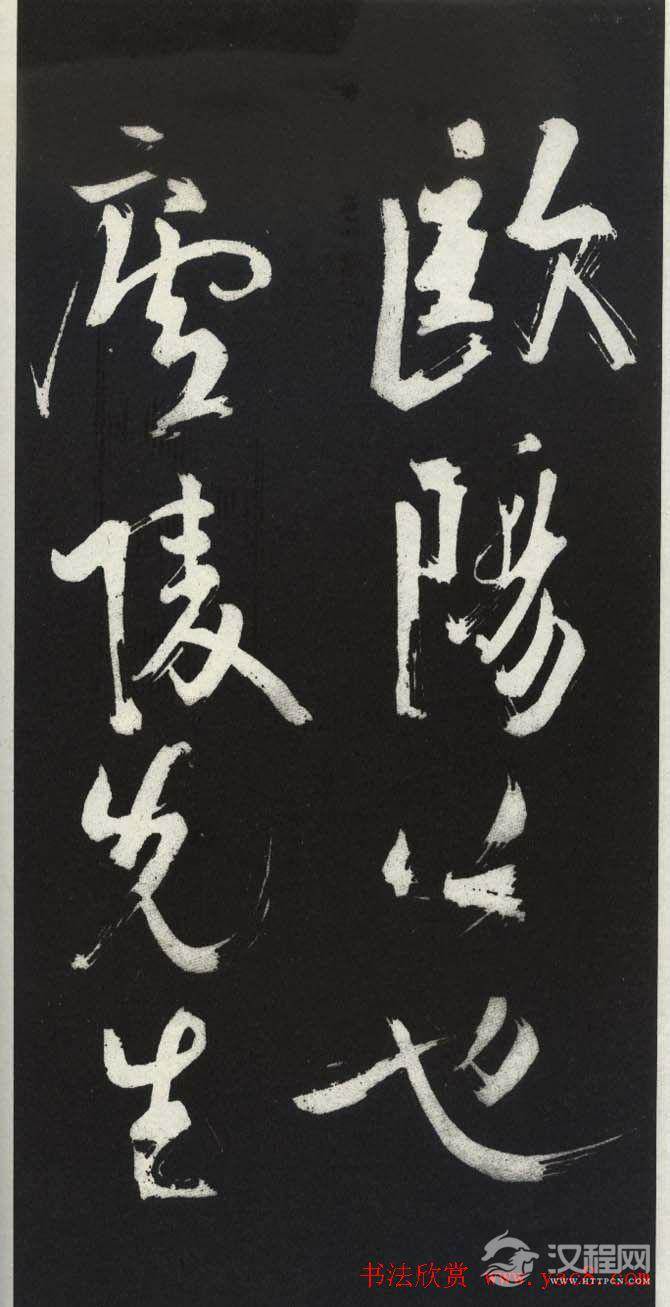 歐陽公也
廬陵先生
汉程网
WWW.HTTPCN.COM
书法欣赏